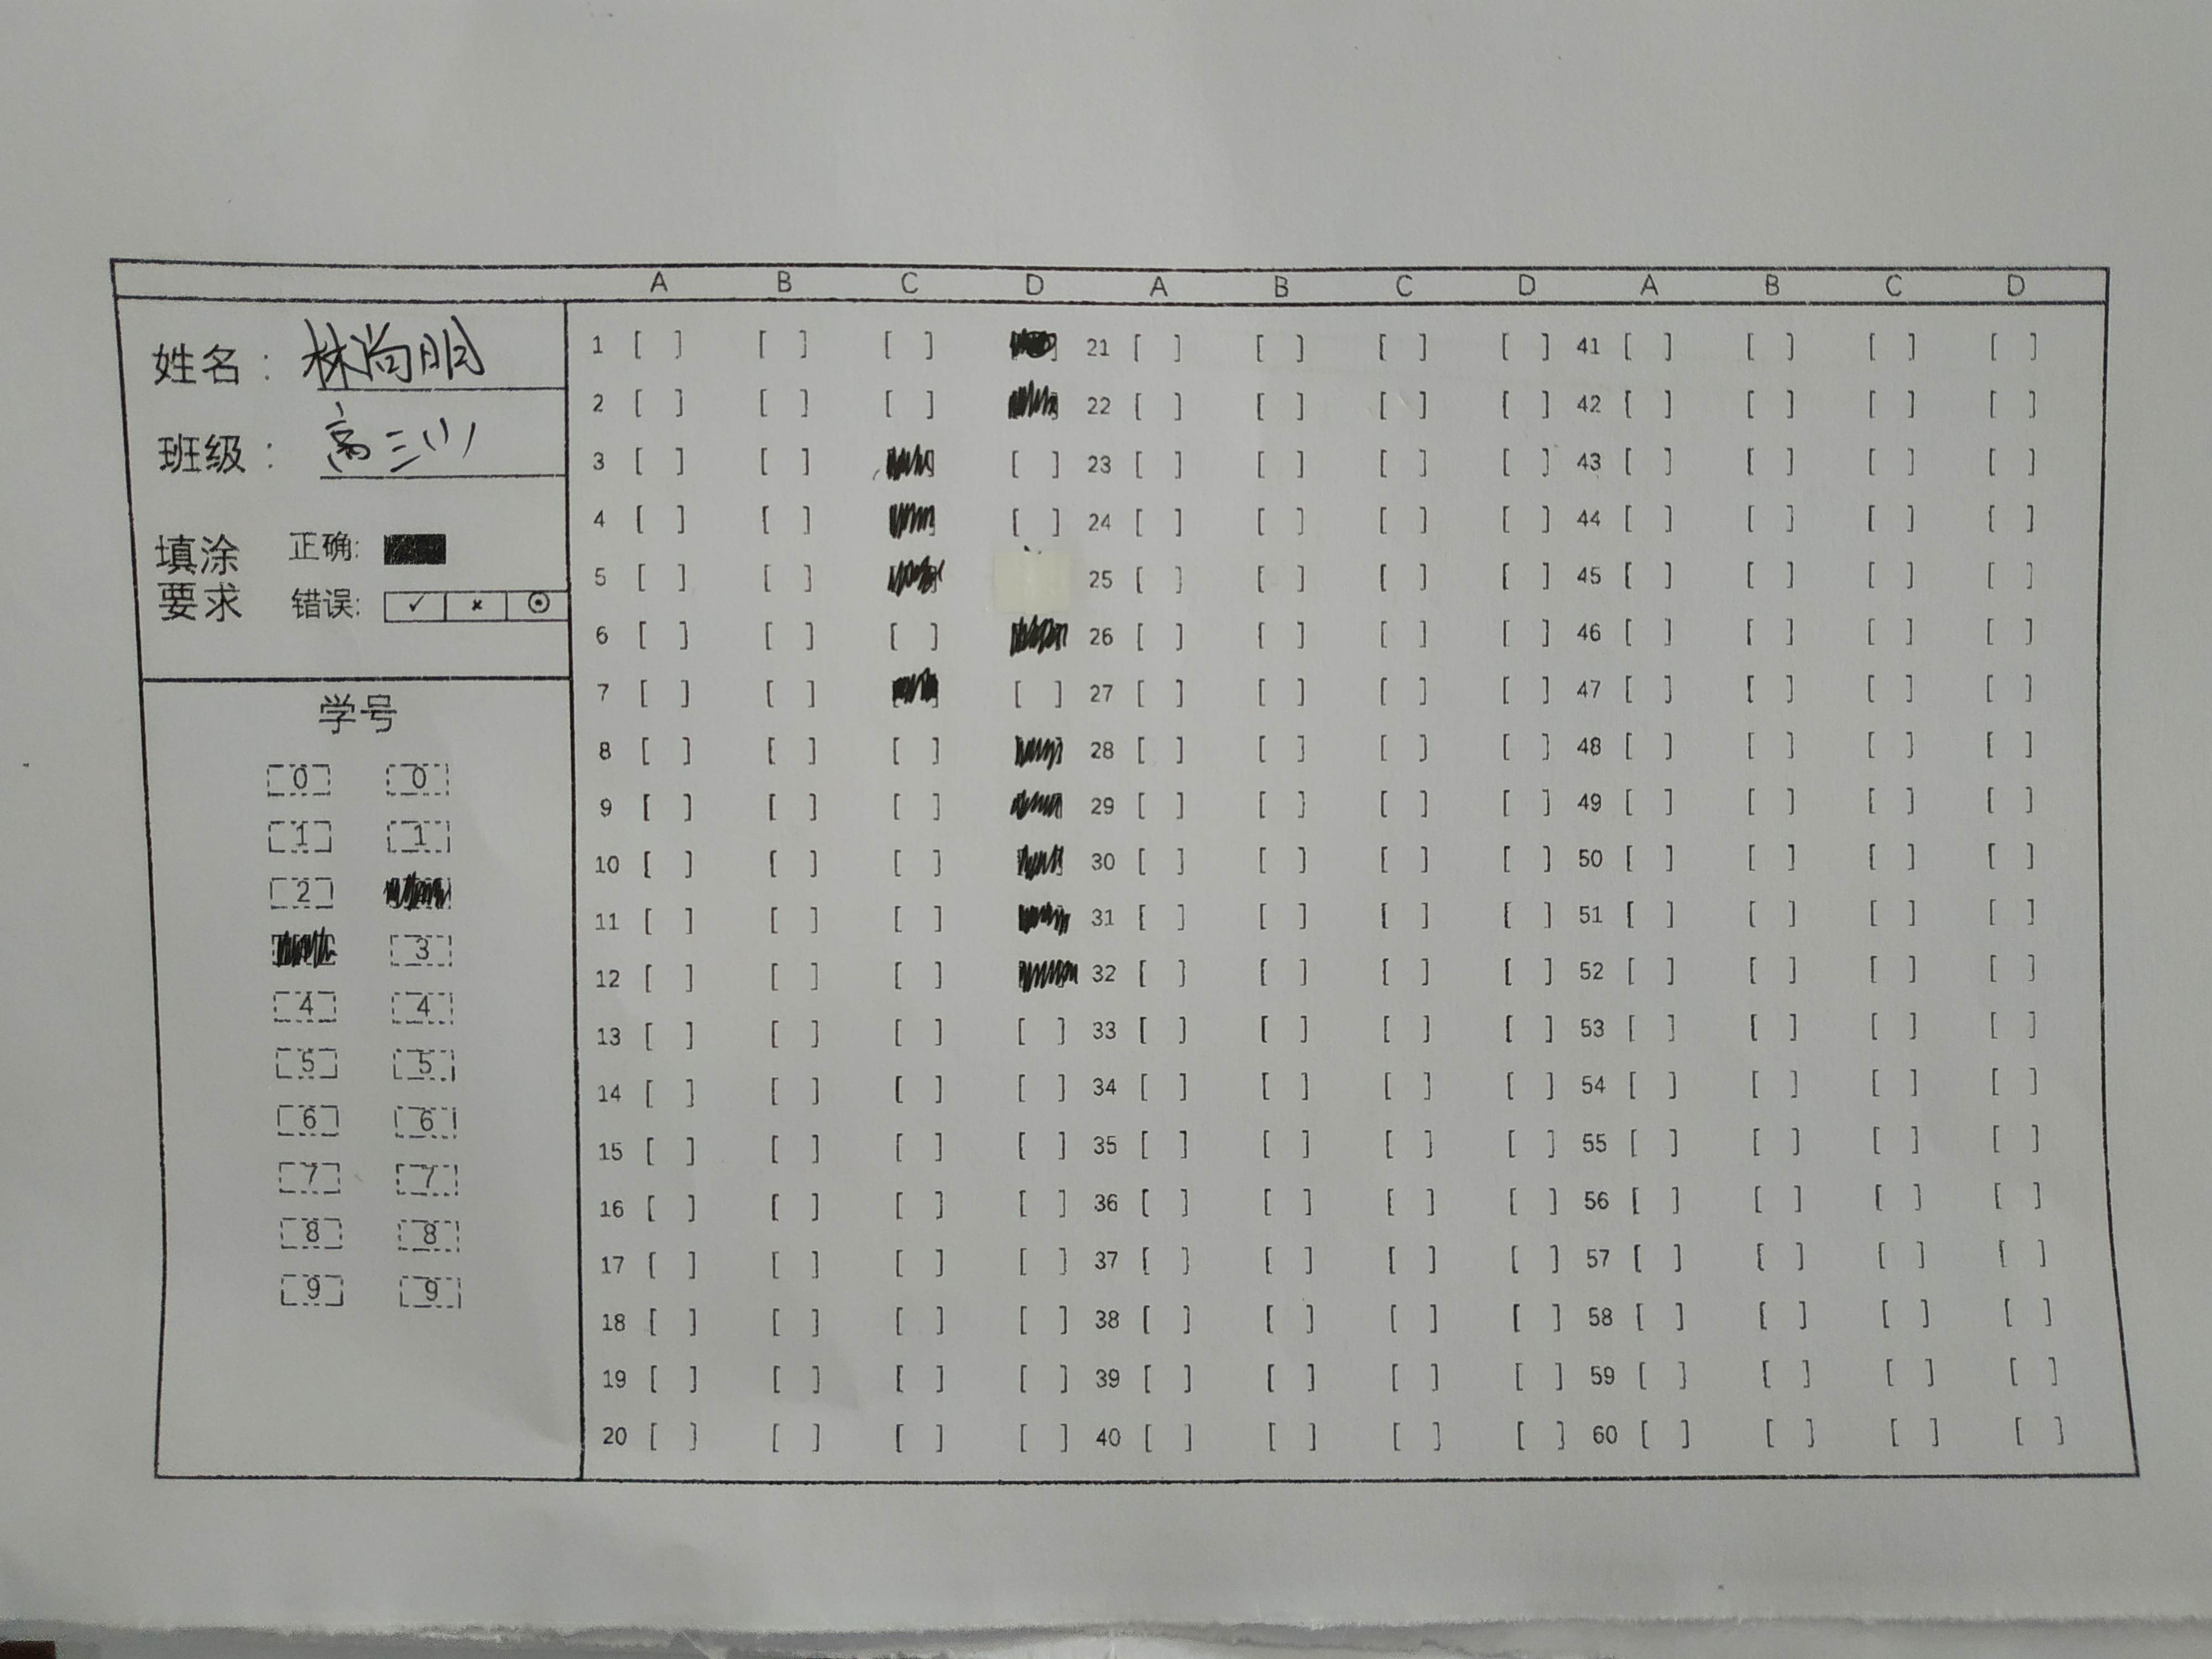 A B C D A B C D A B C D
姓名： 林尚明
班级： 高三(1)
填涂要求 正确:
错误: ✓ × ⊙
学号
0 0
1 1
2
3
4 4
5 5
6 6
7 7
8 8
9 9
1 [ ] [ ] [ ] 21 [ ] [ ] [ ] [ ] 41 [ ] [ ] [ ] [ ]
2 [ ] [ ] [ ] 22 [ ] [ ] [ ] [ ] 42 [ ] [ ] [ ] [ ]
3 [ ] [ ] [ ] 23 [ ] [ ] [ ] [ ] 43 [ ] [ ] [ ] [ ]
4 [ ] [ ] [ ] 24 [ ] [ ] [ ] [ ] 44 [ ] [ ] [ ] [ ]
5 [ ] [ ] 25 [ ] [ ] [ ] [ ] 45 [ ] [ ] [ ] [ ]
6 [ ] [ ] [ ] 26 [ ] [ ] [ ] [ ] 46 [ ] [ ] [ ] [ ]
7 [ ] [ ] [ ] 27 [ ] [ ] [ ] [ ] 47 [ ] [ ] [ ] [ ]
8 [ ] [ ] [ ] 28 [ ] [ ] [ ] [ ] 48 [ ] [ ] [ ] [ ]
9 [ ] [ ] [ ] 29 [ ] [ ] [ ] [ ] 49 [ ] [ ] [ ] [ ]
10 [ ] [ ] [ ] 30 [ ] [ ] [ ] [ ] 50 [ ] [ ] [ ] [ ]
11 [ ] [ ] [ ] 31 [ ] [ ] [ ] [ ] 51 [ ] [ ] [ ] [ ]
12 [ ] [ ] [ ] 32 [ ] [ ] [ ] [ ] 52 [ ] [ ] [ ] [ ]
13 [ ] [ ] [ ] [ ] 33 [ ] [ ] [ ] [ ] 53 [ ] [ ] [ ] [ ]
14 [ ] [ ] [ ] [ ] 34 [ ] [ ] [ ] [ ] 54 [ ] [ ] [ ] [ ]
15 [ ] [ ] [ ] [ ] 35 [ ] [ ] [ ] [ ] 55 [ ] [ ] [ ] [ ]
16 [ ] [ ] [ ] [ ] 36 [ ] [ ] [ ] [ ] 56 [ ] [ ] [ ] [ ]
17 [ ] [ ] [ ] [ ] 37 [ ] [ ] [ ] [ ] 57 [ ] [ ] [ ] [ ]
18 [ ] [ ] [ ] [ ] 38 [ ] [ ] [ ] [ ] 58 [ ] [ ] [ ] [ ]
19 [ ] [ ] [ ] [ ] 39 [ ] [ ] [ ] [ ] 59 [ ] [ ] [ ] [ ]
20 [ ] [ ] [ ] [ ] 40 [ ] [ ] [ ] [ ] 60 [ ] [ ] [ ] [ ]